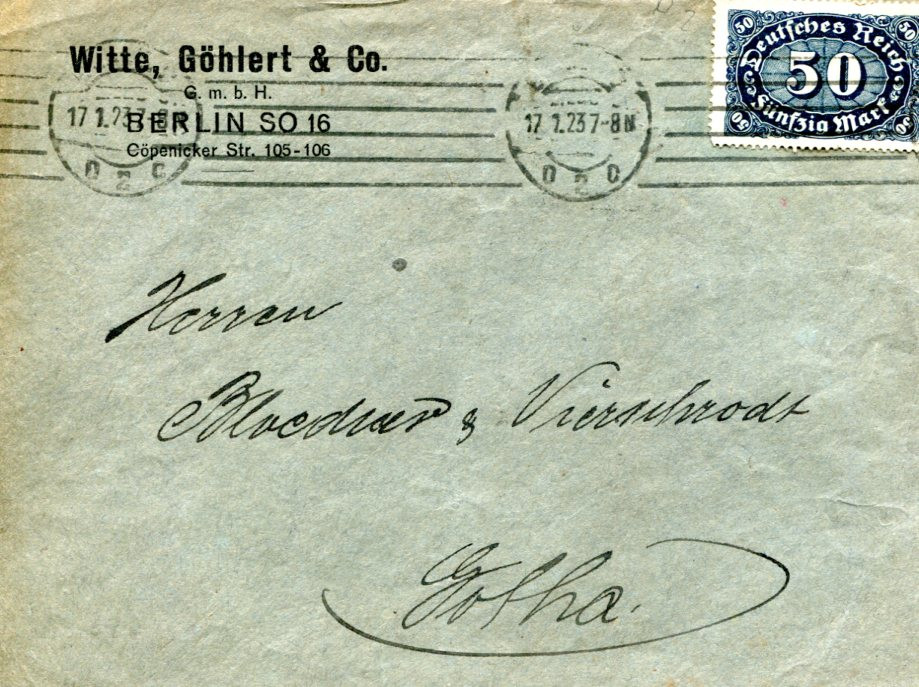 Witte, Göhlert & Co.
G. m. b. H.
BERLIN SO 16
Cöpenicker Str. 105-106
17 1.23 7-8N
17 1.23 7-8N
50
50
Deutsches Reich
50
Fünfzig Mark
50
50
Herren
Bloedner & Vierschrodt
Gotha.